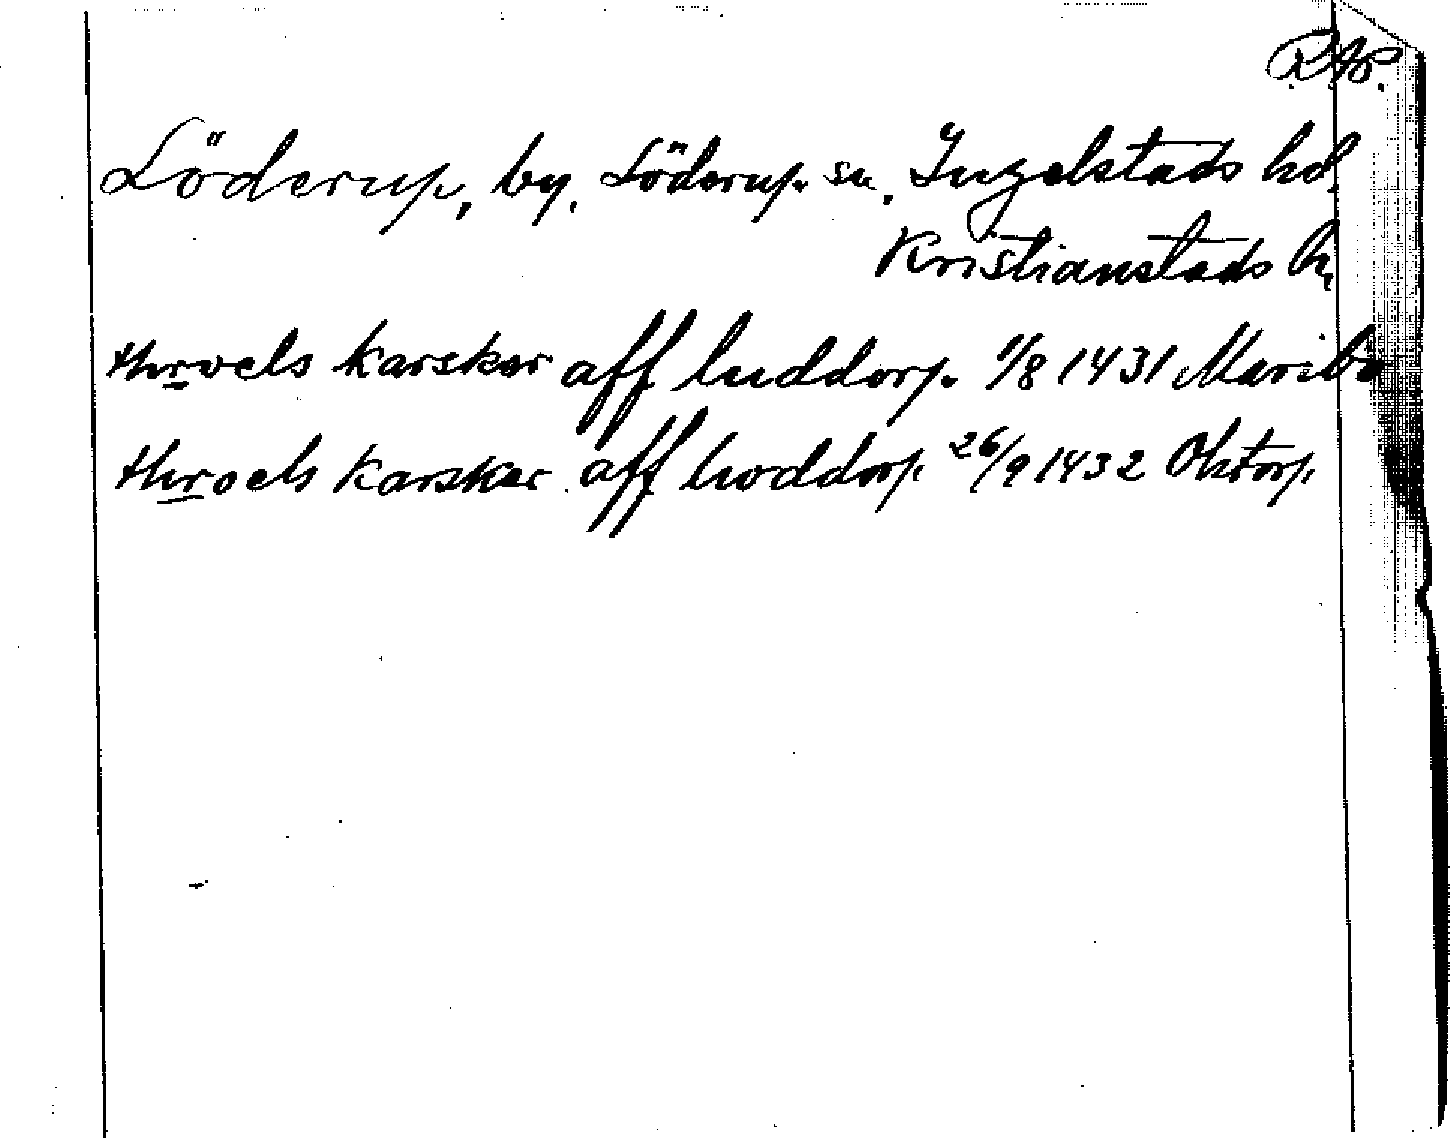 RAP.
Löderup, by, Löderup sn. Ingelstads hd.
Kristianstads l.
thrvels karsker aff luddorp. 1/8 1431 Maribo
throels karsker aff loddorp 26/9 1432 Oxtorp